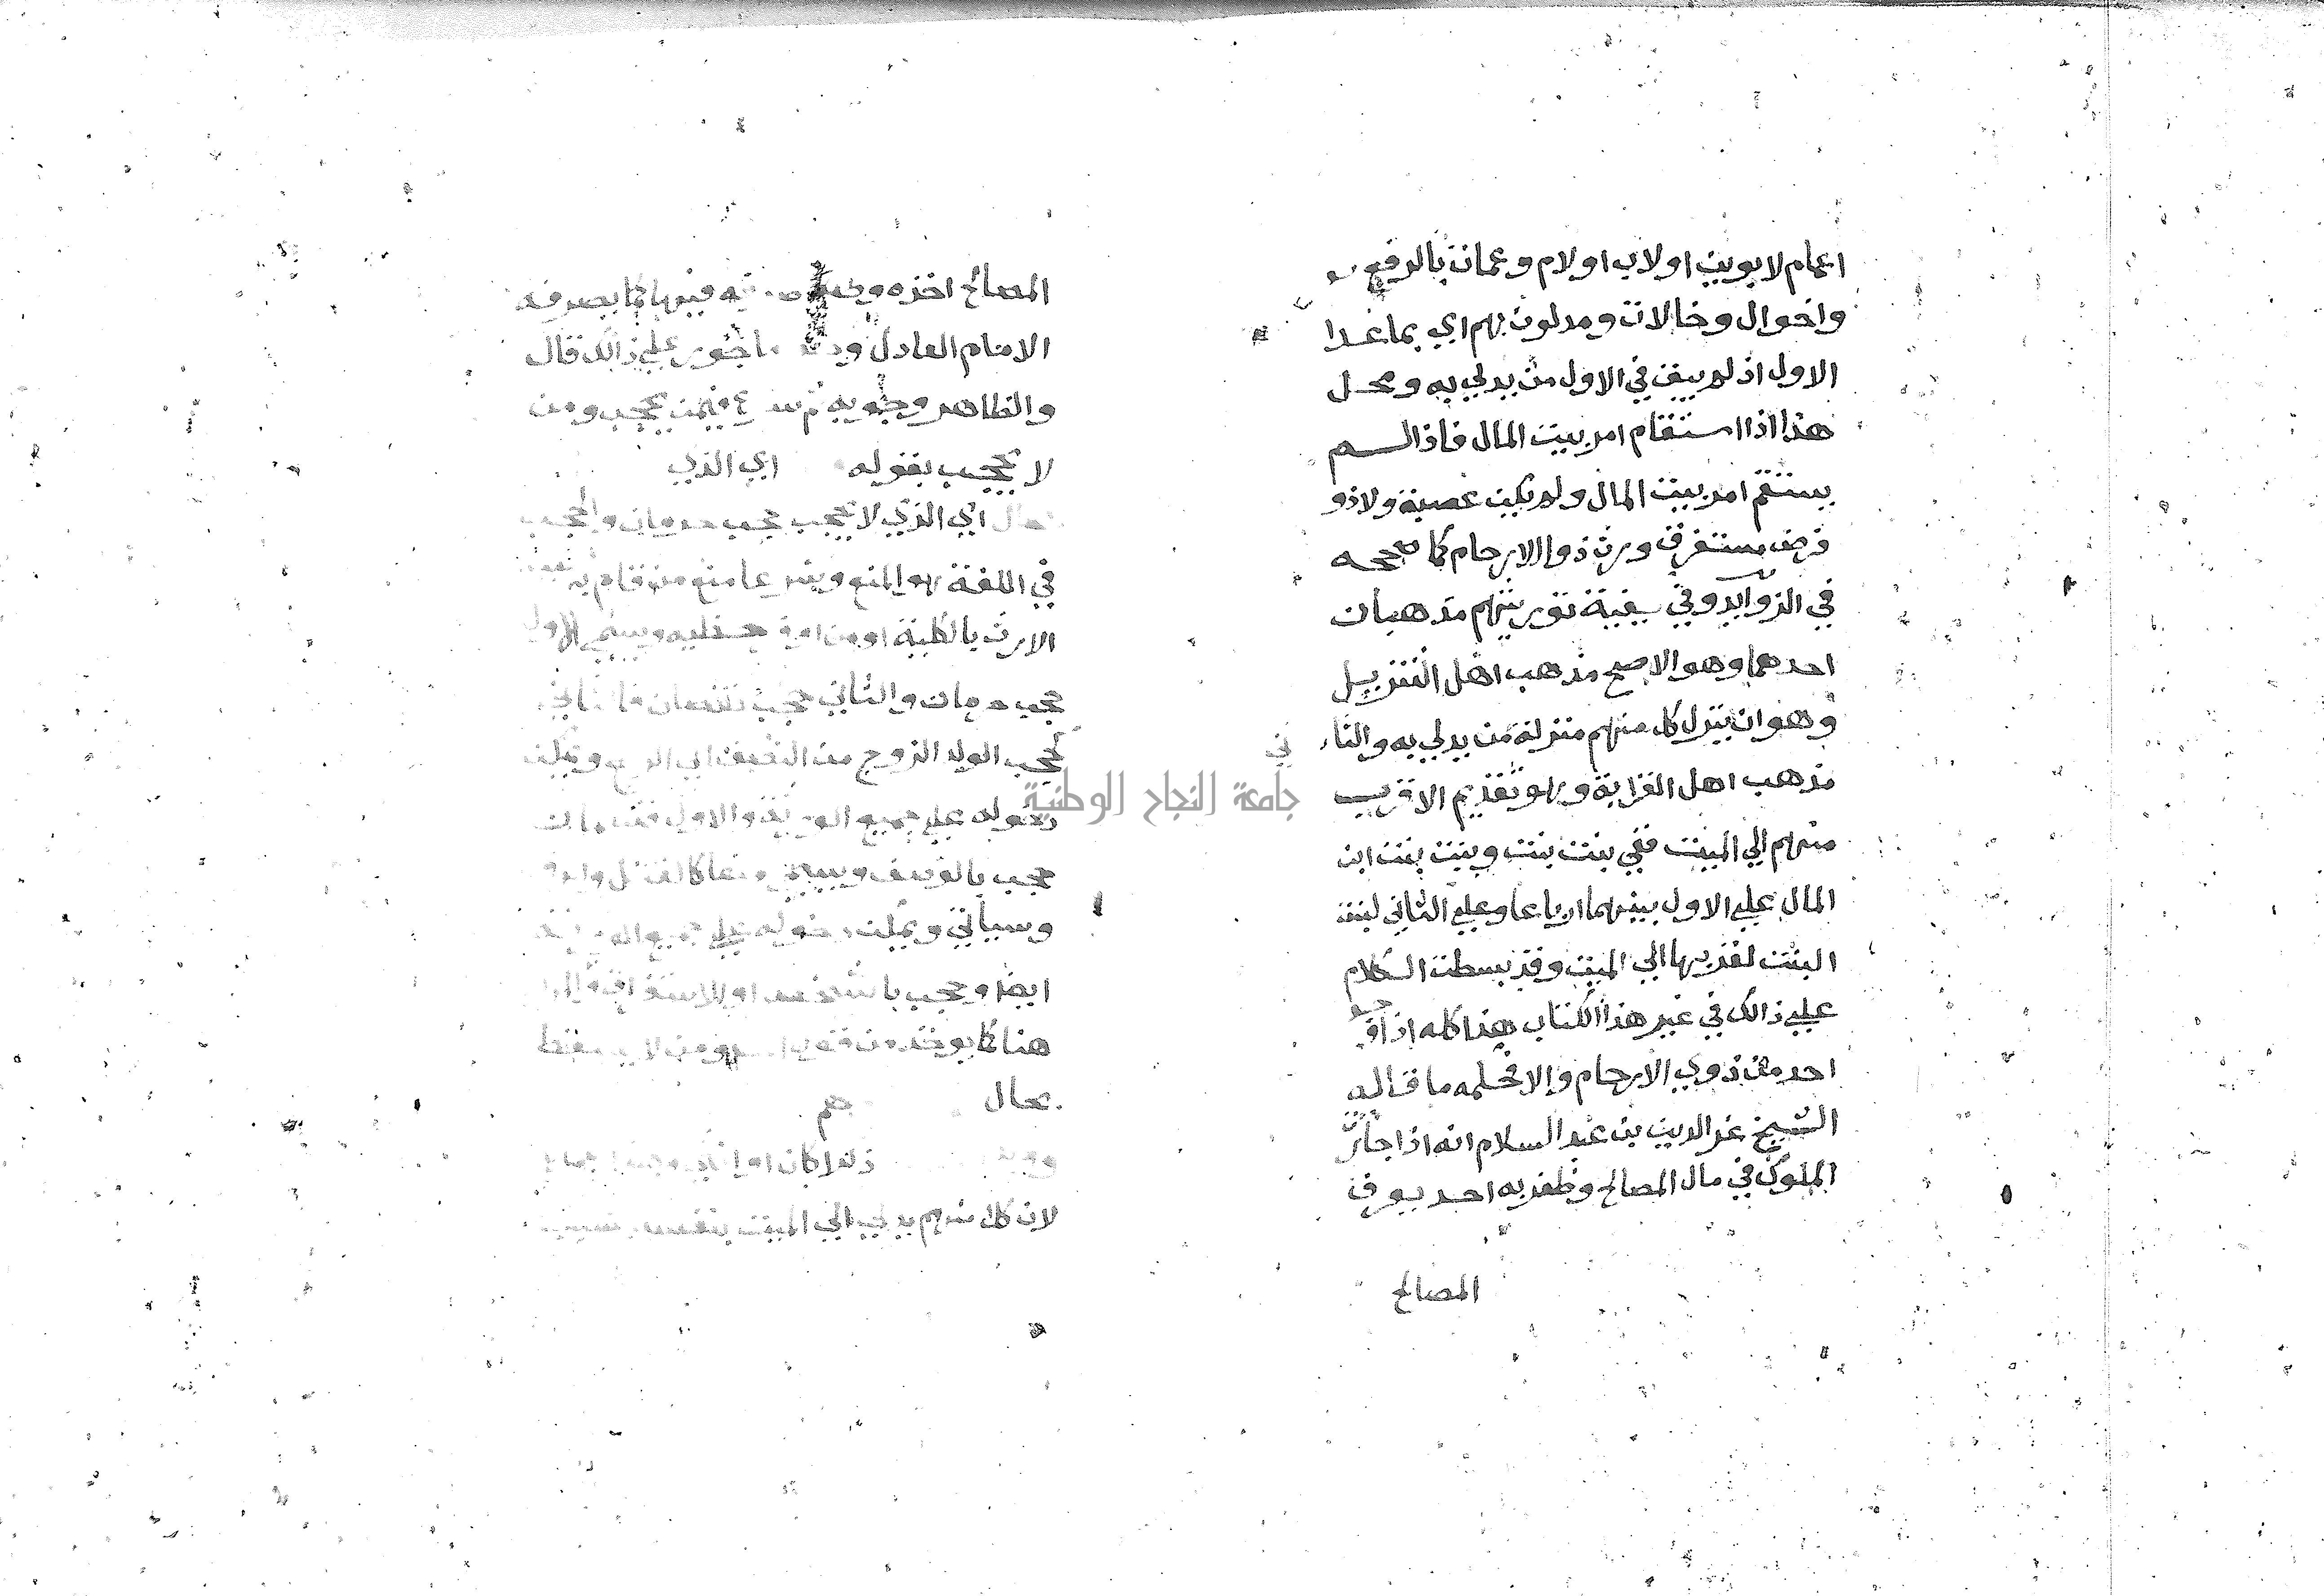 اعمام لابوين او لاب او لام وعمات بالرفع
واخوال وخالات ومدلون بهم اي بما عدا
الاول اذ لم يبق في الاول من يدلي به ومحل
هذا اذا استقام امر بيت المال فاذا لم
يستقم امر بيت المال ولم يكن عصبة ولا ذو
فرض مستغرق ورث ذوا الارحام كما صححه
في الزوايد وفي كيفية توريثهم مذهبان
احدهما وهو الاصح مذهب اهل التنزيل
وهو ان ينزل كل منهم منزلة من يدلي به والثاني
مذهب اهل القرابة وهو تقديم الاقرب
منهم الي الميت ففي بنت بنت وبنت بنت ابن
المال علي الاول بينهما ارباعا وعلي الثاني لبنت
البنت لقربها الي الميت وقد بسطت الكلام
علي ذالك في غير هذا الكتاب هذا كله اذا وجد
احد من ذوي الارحام والا فحكمه ما قاله
الشيخ عز الدين بن عبد السلام انه اذا جارت
الملوك في مال المصالح وظفر به احد يعرف
المصالح
المصالح اخذه فيها كما يصرفه
الامام العادل وهو ماجور علي ذالك قال
والظاهر وجوبه ثم شرع فيمن يحجب ومن
لا يحجب بقوله اي الذي
اي الذي لا يحجب حجب حرمان والحجب
في اللغة هو المنع وشرعا منع من قام به سبب
الارث بالكلية او من اوفر حظيه ويسمي الاول
حجب حرمان والثاني حجب نقصان فالثاني
كحجب الولد الزوج من النصف الي الربع ويمكن
دخوله علي جميع الورثة والاول قسمان
حجب بالوصف ويسمي منعا كالقتل والرق
وسياتي ويمكن دخوله علي جميع الورثة
ايضا وحجب بالشخص او الاستغراق
هنا كما يوخذ من
بحال هم
لان كلا منهم يدلي الي الميت بنفسه
جامعة النجاح الوطنية